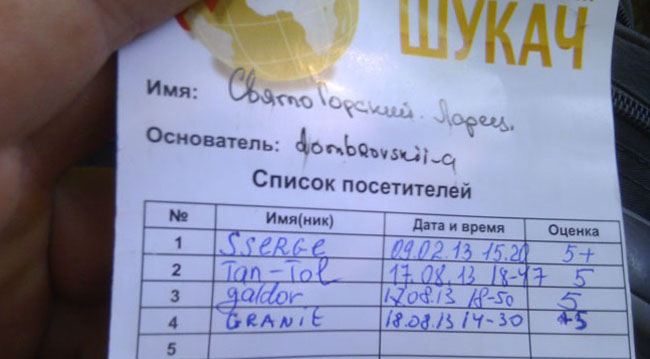 ШУКАЧ
Имя: СвятоГорский Ларец.
Основатель: dombrovskii-a
Список посетителей
№ Имя(ник) Дата и время Оценка
1 SSERGE 09.02.13 15.20 5+
2 Tan-Tol 17.08.13 18-47 5
3 galdor 17.08.13 18-50 5
4 GRANIT 18.08.13 14-30 +5
5